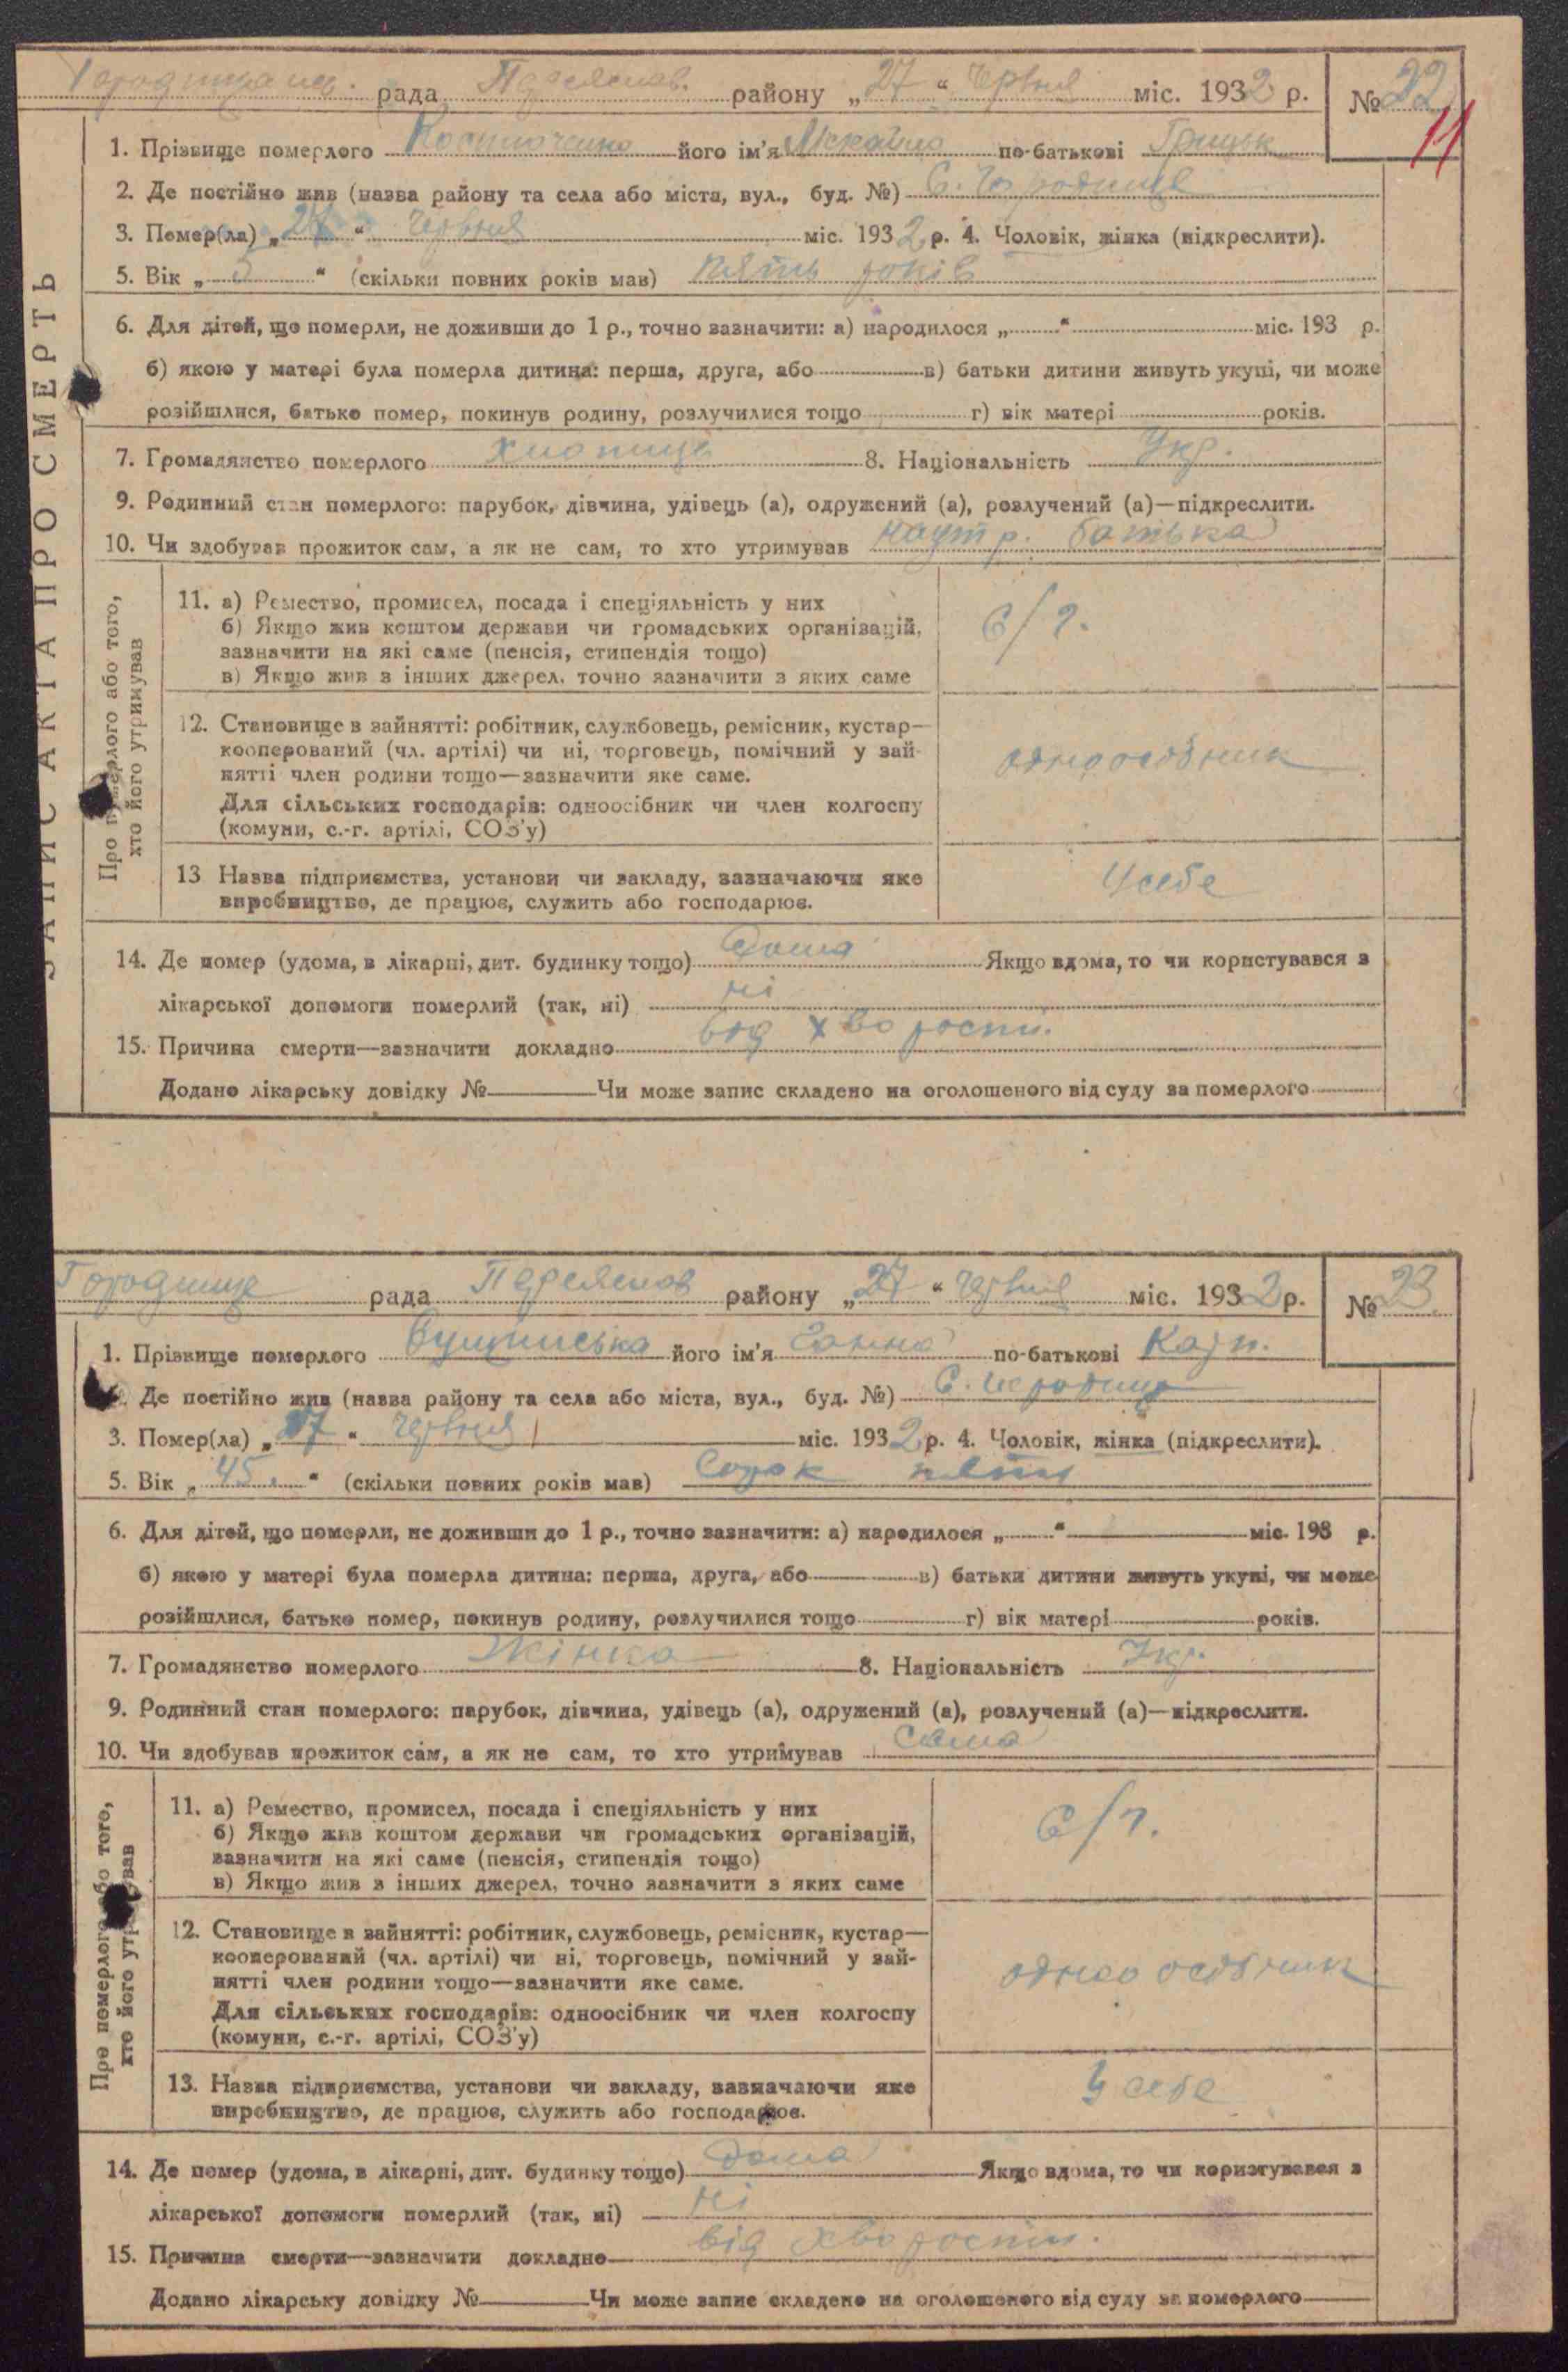 рада Переяслав. району „27“ червня міс. 1932 р. № 22
11
1. Прізвище померлого його ім'я Михайло по-батькові Грицьк
2. Де постійно жив (назва району та села або міста, вул., буд. №) С. Городище
3. Помер(ла) „27“ червня міс. 1932 р. 4. Чоловік, жінка (підкреслити).
5. Вік „5“ (скільки повних років мав) пять років
6. Для дітей, що померли, не доживши до 1 р., точно зазначити: а) народилося „ “ міс. 193 р.
б) якою у матері була померла дитина: перша, друга, або в) батьки дитини живуть укупі, чи може
розійшлися, батько помер, покинув родину, розлучилися тощо г) вік матері років.
7. Громадянство померлого хлопець 8. Національність Укр.
9. Родинний стан померлого: парубок, дівчина, удівець (а), одружений (а), розлучений (а)—підкреслити.
10. Чи здобував прожиток сам, а як не сам, то хто утримував батька
ЗАПИС АКТА ПРО СМЕРТЬ
Про померлого або того,
хто його утримував
11. а) Ремество, промисел, посада і спеціяльність у них
б) Якщо жив коштом держави чи громадських організацій,
зазначити на які саме (пенсія, стипендія тощо)
в) Якщо жив з інших джерел, точно зазначити з яких саме
С/г.
12. Становище в зайнятті: робітник, службовець, ремісник, кустар—
кооперований (чл. артілі) чи ні, торговець, помічний у зай-
нятті член родини тощо—зазначити яке саме.
Для сільських господарів: одноосібник чи член колгоспу
(комуни, с.-г. артілі, СОЗ'у)
одноосібник
13 Назва підприємства, установи чи закладу, зазначаючи яке
виробництво, де працює, служить або господарює.
У себе
14. Де помер (удома, в лікарні, дит. будинку тощо) дома Якщо вдома, то чи користувався з
лікарської допомоги померлий (так, ні) ні
15. Причина смерти—зазначити докладно від хворости.
Додано лікарську довідку № Чи може запис складено на оголошеного від суду за померлого
Городище рада Переяслав району „27“ червня міс. 1932 р. № 23
1. Прізвище померлого його ім'я Ганна по-батькові Карп.
Де постійно жив (назва району та села або міста, вул., буд. №) С. Городище
3. Помер(ла) „27“ червня міс. 1932 р. 4. Чоловік, жінка (підкреслити).
5. Вік „45“ (скільки повних років мав) Сорок пять
6. Для дітей, що померли, не доживши до 1 р., точно зазначити: а) народилося „ “ міс. 193 р.
б) якою у матері була померла дитина: перша, друга, або в) батьки дитини живуть укупі, чи може
розійшлися, батько помер, покинув родину, розлучилися тощо г) вік матері років.
7. Громадянство померлого Жінка 8. Національність Укр.
9. Родинний стан померлого: парубок, дівчина, удівець (а), одружений (а), розлучений (а)—підкреслити.
10. Чи здобував прожиток сам, а як не сам, то хто утримував Сама
Про померлого або того,
хто його утримував
11. а) Ремество, промисел, посада і спеціяльність у них
б) Якщо жив коштом держави чи громадських організацій,
зазначити на які саме (пенсія, стипендія тощо)
в) Якщо жив з інших джерел, точно зазначити з яких саме
С/г.
12. Становище в зайнятті: робітник, службовець, ремісник, кустар—
кооперований (чл. артілі) чи ні, торговець, помічний у зай-
нятті член родини тощо—зазначити яке саме.
Для сільських господарів: одноосібник чи член колгоспу
(комуни, с.-г. артілі, СОЗ'у)
одноосібник
13. Назва підприємства, установи чи закладу, зазначаючи яке
виробництво, де працює, служить або господарює.
У себе
14. Де помер (удома, в лікарні, дит. будинку тощо) дома Якщо вдома, то чи користувався з
лікарської допомоги померлий (так, ні) ні
15. Причина смерти—зазначити докладно від хворости.
Додано лікарську довідку № Чи може запис складено на оголошеного від суду за померлого